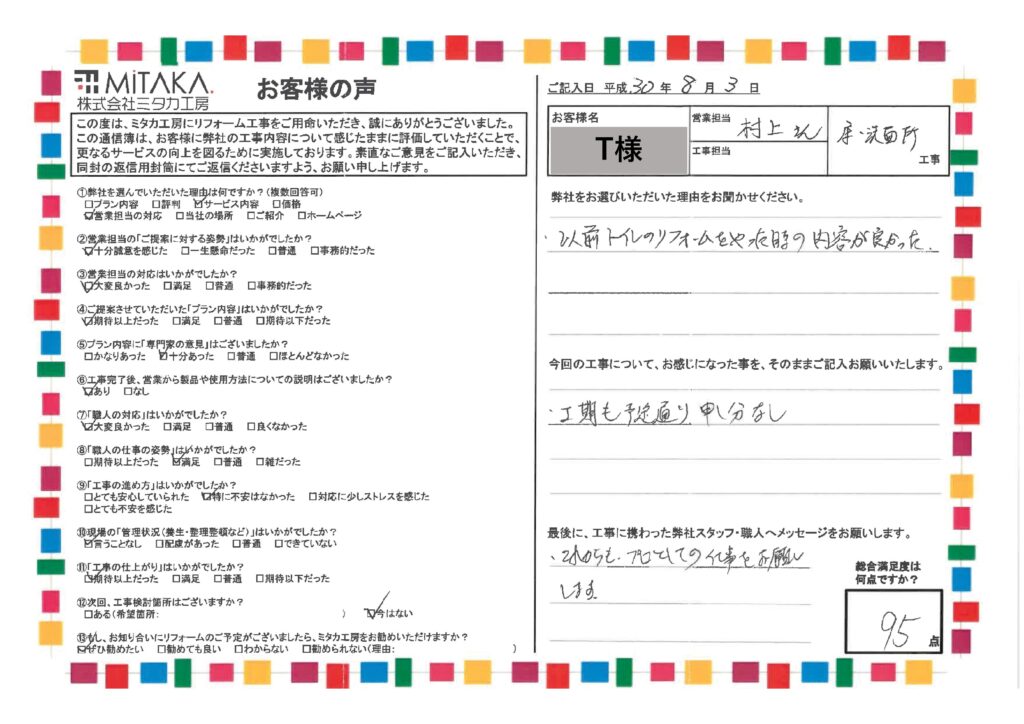 MiTAKA.
株式会社ミタカ工房
お客様の声
この度は、ミタカ工房にリフォーム工事をご用命いただき、誠にありがとうございました。
この通信簿は、お客様に弊社の工事内容について感じたままに評価していただくことで、
更なるサービスの向上を図るために実施しております。素直なご意見をご記入いただき、
同封の返信用封筒にてご返信くださいますよう、お願い申し上げます。
①弊社を選んでいただいた理由は何ですか?(複数回答可)
□プラン内容 □評判 ☑サービス内容 □価格
☑営業担当の対応 □当社の場所 □ご紹介 □ホームページ
②営業担当の「ご提案に対する姿勢」はいかがでしたか?
☑十分誠意を感じた □一生懸命だった □普通 □事務的だった
③営業担当の対応はいかがでしたか?
☑大変良かった □満足 □普通 □事務的だった
④ご提案させていただいた「プラン内容」はいかがでしたか?
☑期待以上だった □満足 □普通 □期待以下だった
⑤プラン内容に「専門家の意見」はございましたか?
□かなりあった ☑十分あった □普通 □ほとんどなかった
⑥工事完了後、営業から製品や使用方法についての説明はございましたか?
☑あり □なし
⑦「職人の対応」はいかがでしたか?
☑大変良かった □満足 □普通 □良くなかった
⑧「職人の仕事の姿勢」はいかがでしたか?
□期待以上だった ☑満足 □普通 □雑だった
⑨「工事の進め方」はいかがでしたか?
□とても安心していられた ☑特に不安はなかった □対応に少しストレスを感じた
□とても不安を感じた
⑩現場の「管理状況(養生・整理整頓など)」はいかがでしたか?
☑言うことなし □配慮があった □普通 □できていない
⑪「工事の仕上がり」はいかがでしたか?
☑期待以上だった □満足 □普通 □期待以下だった
⑫次回、工事検討箇所はございますか?
□ある(希望箇所: ) ☑今はない
⑬もし、お知り合いにリフォームのご予定がございましたら、ミタカ工房をお勧めいただけますか?
☑ぜひ勧めたい □勧めても良い □わからない □勧められない(理由: )
ご記入日 平成 30 年 8 月 3 日
お客様名
T様
営業担当 村上さん
工事担当
床・洗面所
工事
弊社をお選びいただいた理由をお聞かせください。
・以前トイレのリフォームをやった時の内容が良かった.
今回の工事について、お感じになった事を、そのままご記入お願いいたします。
・工期も予定通り 申し分なし
最後に、工事に携わった弊社スタッフ・職人へメッセージをお願いします。
・これからも、プロとしての仕事をお願い
します
総合満足度は
何点ですか?
95 点